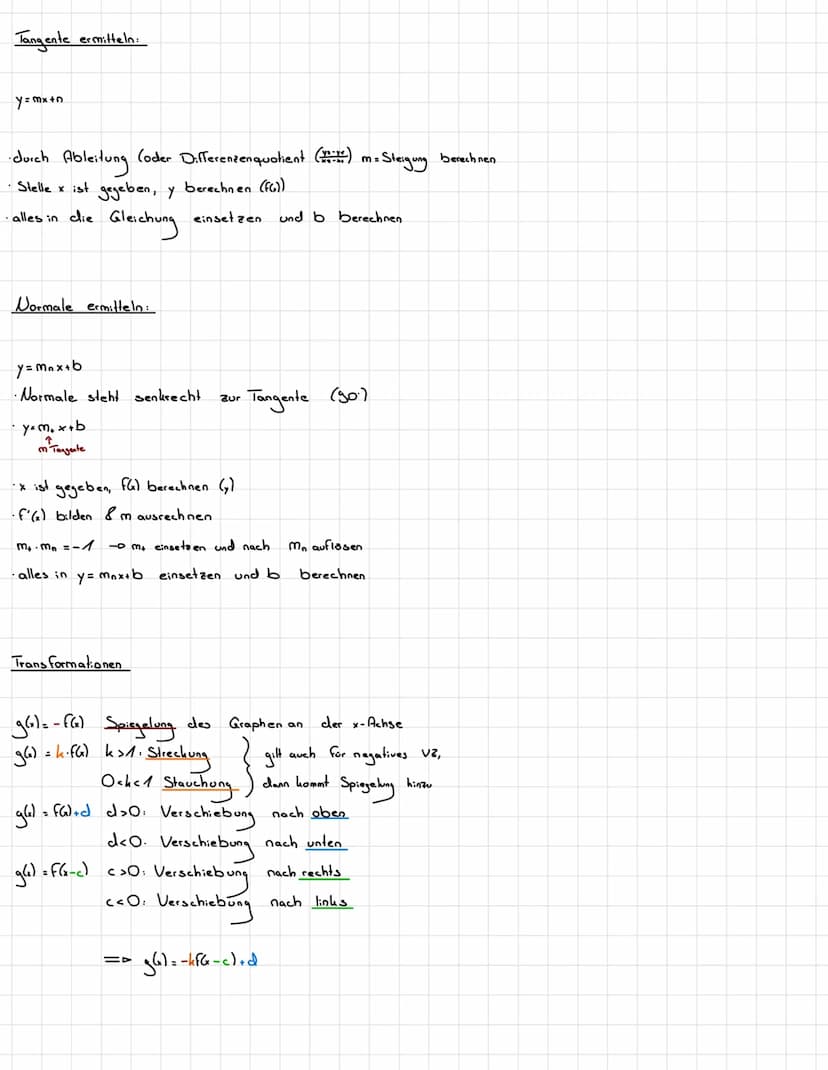 Tangente ermitteln:
y=mx+n
·durch Ableitung (oder Differenzenquotient (y₂-y₁/x₂-x₁) m=Steigung berechnen
· Stelle x ist gegeben, y berechnen (f(x))
·alles in die Gleichung einsetzen und b berechnen
Normale ermitteln:
y=mₙx+b
·Normale steht senkrecht zur Tangente (90°)
· y=mₜ x+b
↑
m Tangente
·x ist gegeben, f(x) berechnen (y)
·f'(x) bilden & m ausrechnen
mₜ·mₙ =-1 → mₜ einsetzen und nach mₙ auflösen
·alles in y=mₙx+b einsetzen und b berechnen
Transformationen
g(x)=-f(x) Spiegelung des Graphen an der x-Achse
g(x)=k·f(x) k>1: Streckung } gilt auch für negatives VZ,
0<k<1 Stauchung } dann kommt Spiegelung hinzu
g(x)=f(x)+d d>0: Verschiebung nach oben
d<0: Verschiebung nach unten
g(x)=f(x-c) c>0: Verschiebung nach rechts
c<0: Verschiebung nach links
=> g(x)=-kf(x-c)+d